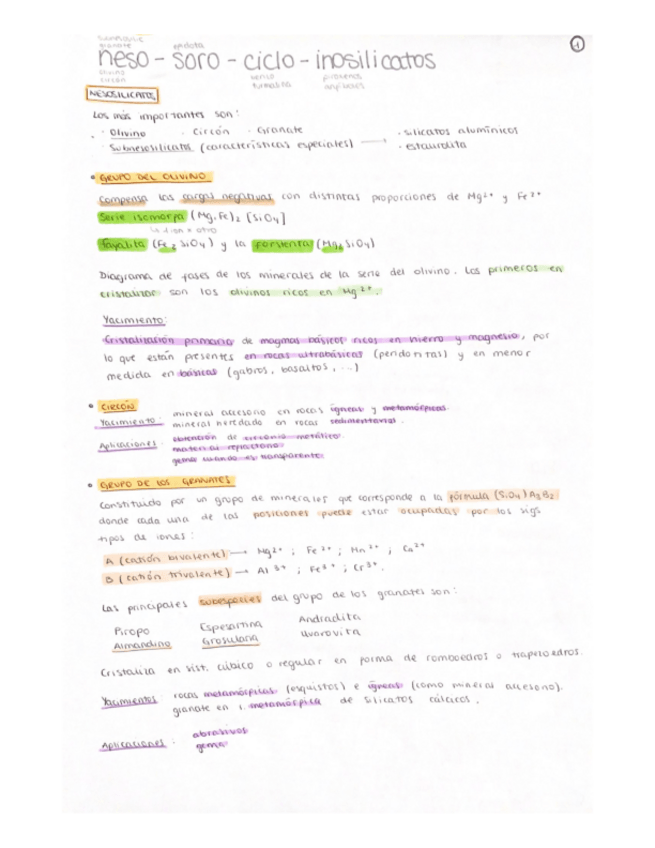 ①
granate epidota
neso - soro - ciclo - inosilicatos
olivino berilo piroxenos
circón turmalina anfíboles
NESOSILICATOS
Los más importantes son:
· Olivino · Circón · Granate · silicatos alumínicos
· Subnesosilicatos (características especiales) → · estaurolita
• GRUPO DEL OLIVINO
Compensa las cargas negativas con distintas proporciones de Mg²⁺ y Fe²⁺
Serie isomorfa (Mg, Fe)₂ [SiO₄]
↳ 1 ion x otro
fayalita (Fe₂ SiO₄) y la forsterita (Mg₂SiO₄)
Diagrama de fases de los minerales de la serie del olivino. Los primeros en
cristalizar son los olivinos ricos en Mg²⁺.
Yacimiento:
Cristalización primaria de magmas básicos ricos en hierro y magnesio, por
lo que están presentes en rocas ultrabásicas (peridotitas) y en menor
medida en básicas (gabros, basaltos, ...)
• CIRCÓN
Yacimiento: mineral accesorio en rocas ígneas y metamórficas.
mineral heredado en rocas sedimentarias.
Aplicaciones: obtención de circonio metálico
material refractario
gema cuando es transparente
• GRUPO DE LOS GRANATES
Constituido por un grupo de minerales que corresponde a la fórmula (SiO₄) A₃B₂
donde cada una de las posiciones puede estar ocupadas por los sigs
tipos de iones:
A (catión bivalente) → Mg²⁺ ; Fe²⁺ ; Mn²⁺ ; Ca²⁺
B (catión trivalente) → Al³⁺ ; Fe³⁺ ; Cr³⁺.
Las principales subespecies del grupo de los granates son:
Piropo Espesartina Andradita
Almandino Grosularia Uvarovita
Cristaliza en sist. cúbico o regular en forma de romboedros o trapezoedros.
Yacimientos: rocas metamórficas (esquistos) e ígneas (como mineral accesorio).
granate en r. metamórfica de silicatos cálcicos.
Aplicaciones: abrasivos
gema